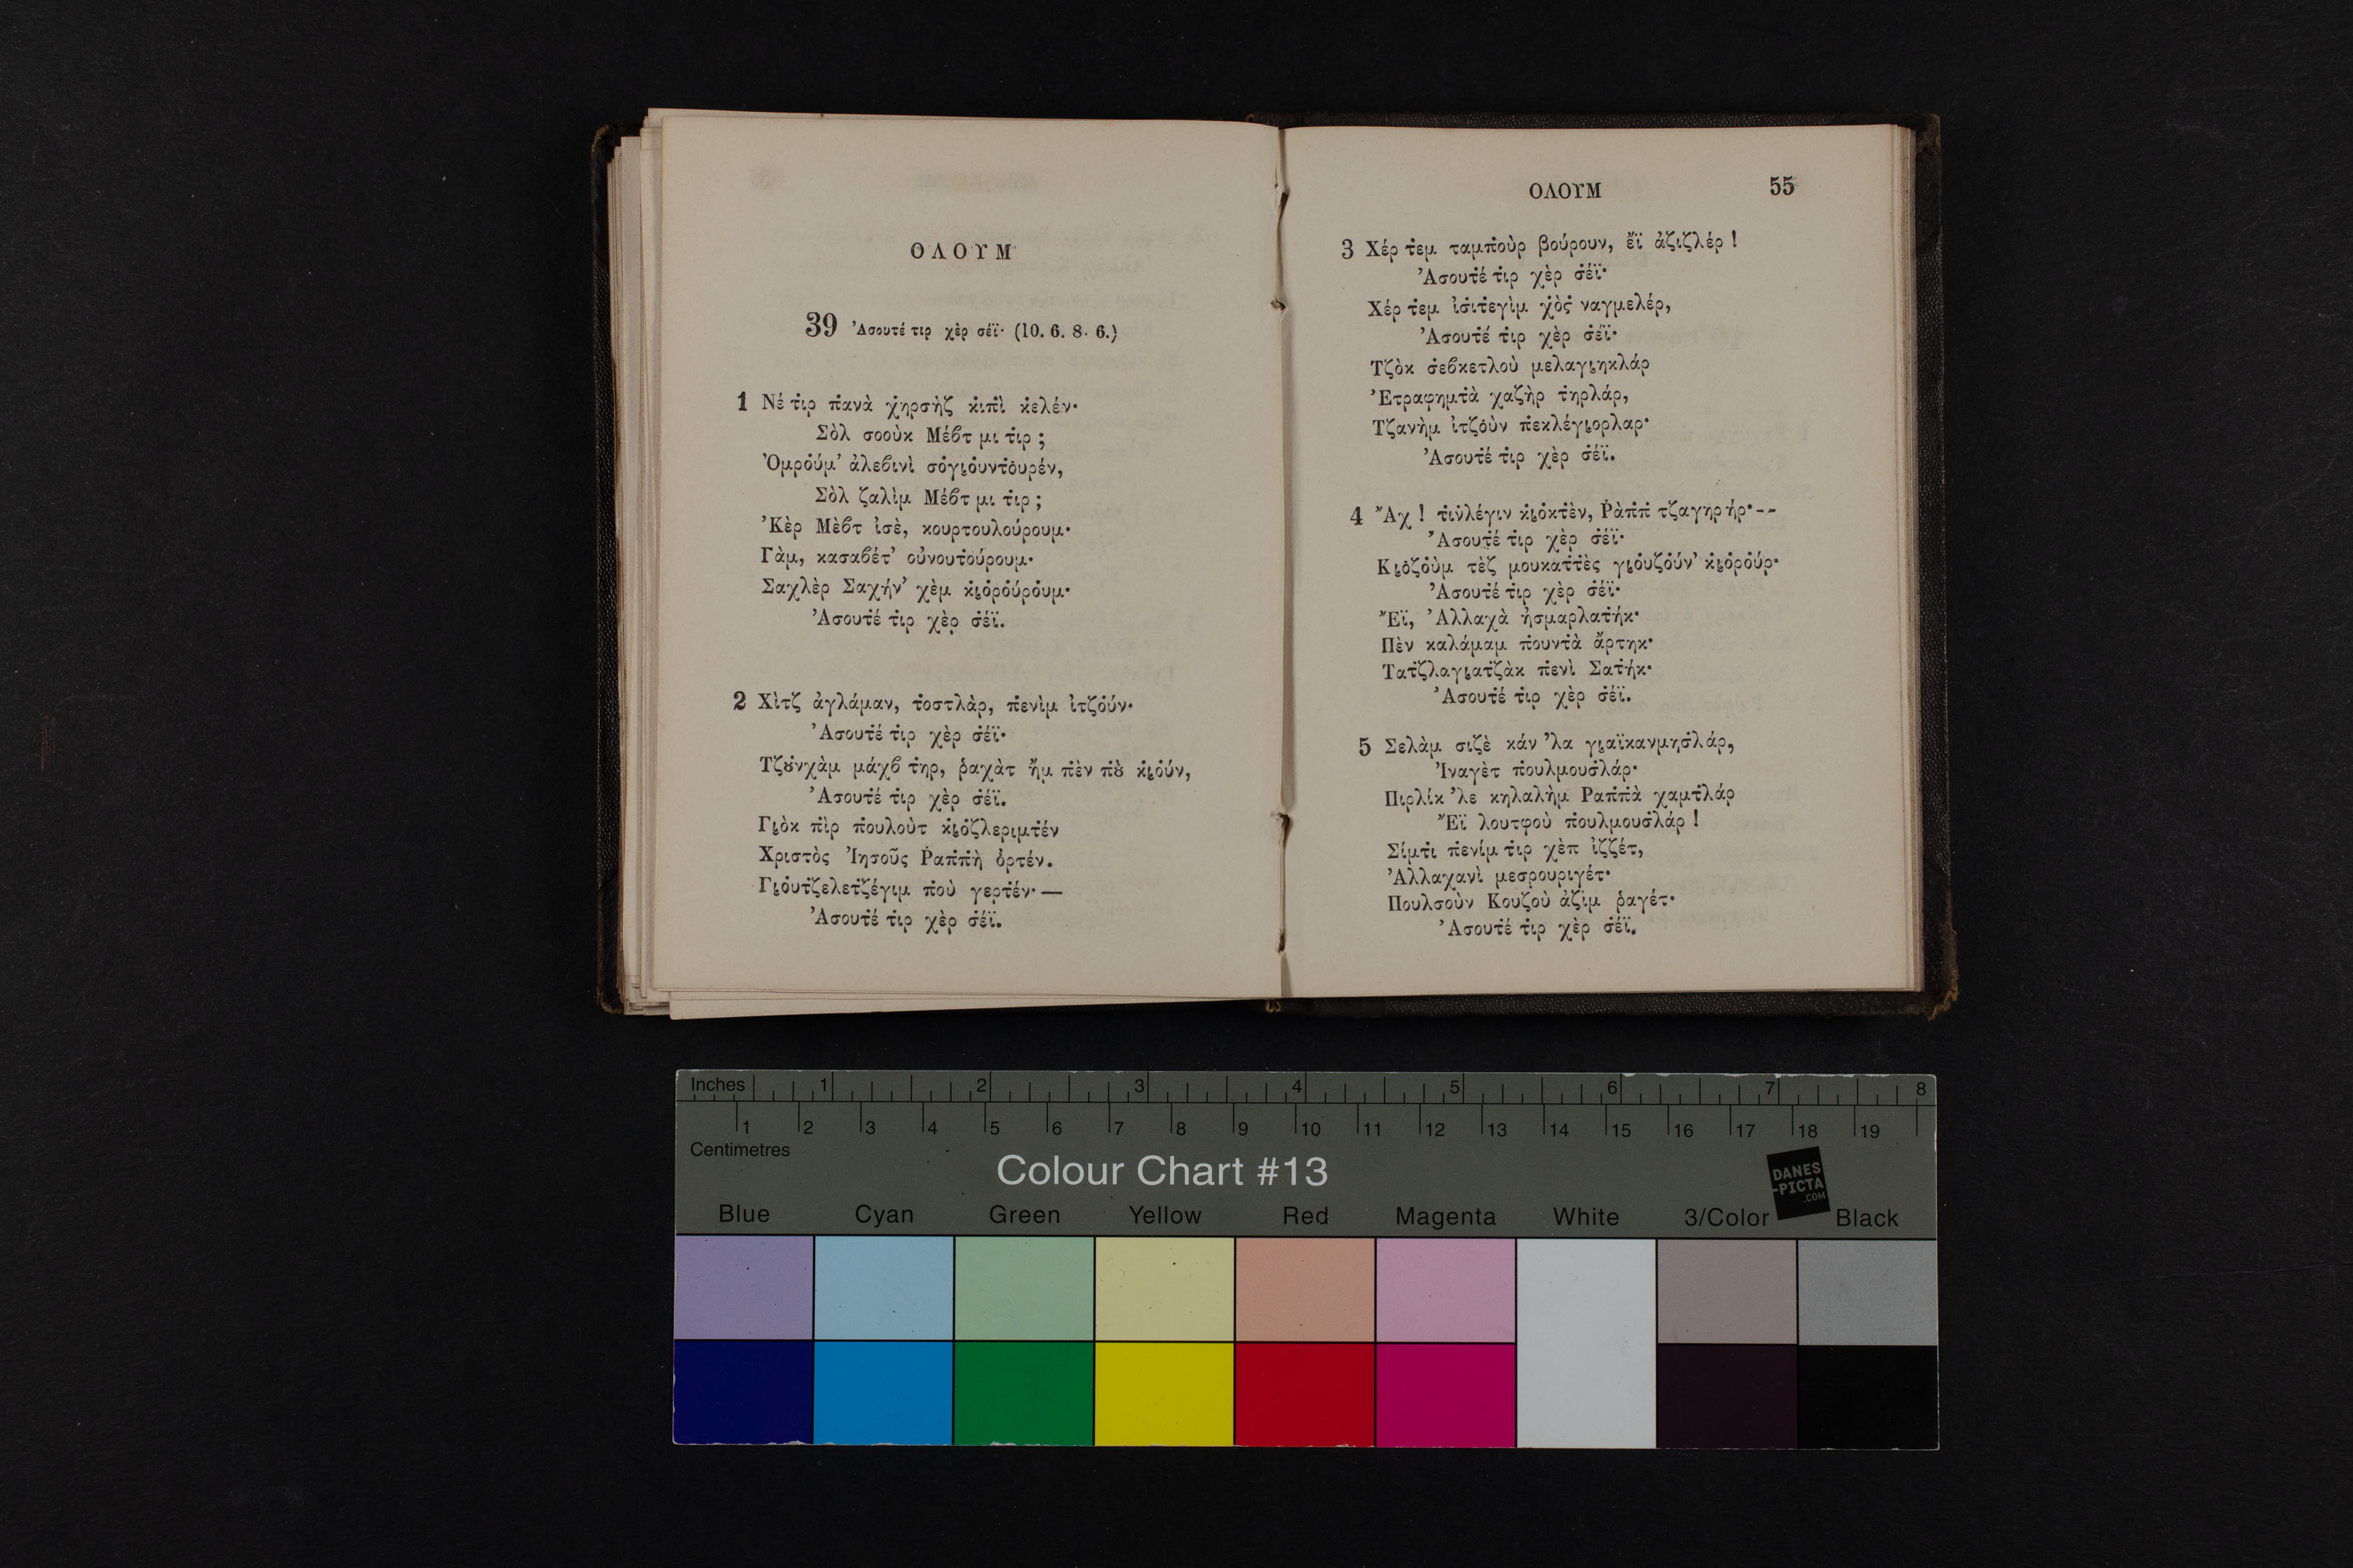 ΟΛΟΥΜ
39 Ἀσουτέ τιρ χὲρ σέϊ· (10. 6. 8. 6.)
1 Νέ τ̇ιρ π̇ανὰ χ̇ηρσὴζ κ̇ιπ̇ὶ κ̇ελέν·
Σὸλ σοοὺκ Μέϐτ μι τ̇ιρ ;
Ὀμρού̇μ’ ἀλεϐινὶ σό̇γι̮ου̇ντο̇υρέν,
Σὸλ ζαλὶμ Μέϐτ μι τ̇ιρ ;
Ἐκὲρ Μὲϐτ ἰσὲ, κουρτουλούρουμ·
Γὰμ, κασαϐέτ’ οὐνουτ̇ούρουμ·
Σαχλὲρ Σαχήν’ χὲμ κ̇ι̮ο̇ρού̇ρο̇υμ·
Ἀσουτ̇έ τ̇ιρ χὲρ σ̇έϊ.
2 Χὶτζ ἀγλάμαν, τ̇οστλὰρ, π̇ενὶμ ἰτζού̇ν·
Ἀσουτ̇έ τ̇ιρ χὲρ σ̇έϊ·
Τζȣ̇νχὰμ μάχϐ τ̇ηρ, ῥαχὰτ ἤμ π̇ὲν π̇ȣ̀ κ̇ι̮ού̇ν,
Ἀσουτ̇έ τ̇ιρ χὲρ σ̇έϊ.
Γι̮ὸκ π̇ὶρ π̇ουλοὺτ κ̇ι̮ο̇ζλεριμτ̇έν
Χριστὸς Ἰησοῦς Ῥαπ̇π̇ὴ ὀ̇ρτέν.
Γι̮ο̇υτ̇ζελετ̇ζέγιμ π̇οὺ γερτ̇έν·—
Ἀσουτ̇έ τ̇ιρ χὲρ σ̇έϊ.
ΟΛΟΥΜ 55
3 Χέρ τ̇εμ ταμπ̇οὺρ βούρουν, ἔϊ ἀζιζλέρ !
Ἀσουτ̇έ τ̇ιρ χὲρ σ̇έϊ·
Χέρ τ̇εμ ἰσ̇ιτ̇εγὶμ χ̇ὸς̇ ναγμελέρ,
Ἀσουτ̇έ τ̇ιρ χὲρ σ̇έϊ·
Τζὸκ σ̇εϐκετλοὺ μελαγι̮ηκλάρ
Ἐτραφημτ̇ὰ χαζὴρ τ̇ηρλάρ,
Τζανὴμ ἰτζο̇ὺν π̇εκλέγι̮ορλαρ·
Ἀσουτ̇έ τ̇ιρ χὲρ σ̇έϊ.
4 Ἄχ ! τ̇ιν̇λέγιν κ̇ι̮ο̇κτ̇ὲν, Ῥὰπ̇π̇ τζαγηρήρ·--
Ἀσουτ̇έ τ̇ιρ χὲρ σ̇έϊ·
Κι̮ο̇ζο̇ὺμ τὲζ μουκατ̇τ̇ὲς γι̮ο̇υζού̇ν’ κ̇ι̮ο̇ρού̇ρ·
Ἀσουτ̇έ τ̇ιρ χὲρ σ̇έϊ·
Ἔϊ, Ἀλλαχὰ ἠσμαρλατ̇ήκ·
Π̇ὲν καλάμαμ π̇ουντ̇ὰ ἄρτηκ·
Τατ̇ζλαγι̮ατ̇ζὰκ π̇ενὶ Σατ̇ήκ·
Ἀσουτ̇έ τ̇ιρ χὲρ σ̇έϊ.
5 Σελὰμ σιζὲ κάν ’λα γι̮αϊκανμησ̇λάρ,
Ἰναγὲτ π̇ουλμουσ̇λάρ·
Π̇ιρλίκ ’λε κηλαλὴμ Ραπ̇π̇ὰ χαμτ̇λάρ
Ἔϊ λουτφοὺ π̇ουλμουσ̇λάρ !
Σ̇ίμτ̇ι π̇ενίμ τ̇ιρ χὲπ ἰζζέτ,
Ἀλλαχανὶ μεσρουριγέτ·
Π̇ουλσοὺν Κουζοὺ ἀζὶμ ῥαγέτ·
Ἀσουτ̇έ τ̇ιρ χὲρ σ̇έϊ.
Inches 1 2 3 4 5 6 7 8
1 2 3 4 5 6 7 8 9 10 11 12 13 14 15 16 17 18 19
Centimetres
Colour Chart #13
DANES
-PICTA
.COM
Blue Cyan Green Yellow Red Magenta White 3/Color Black